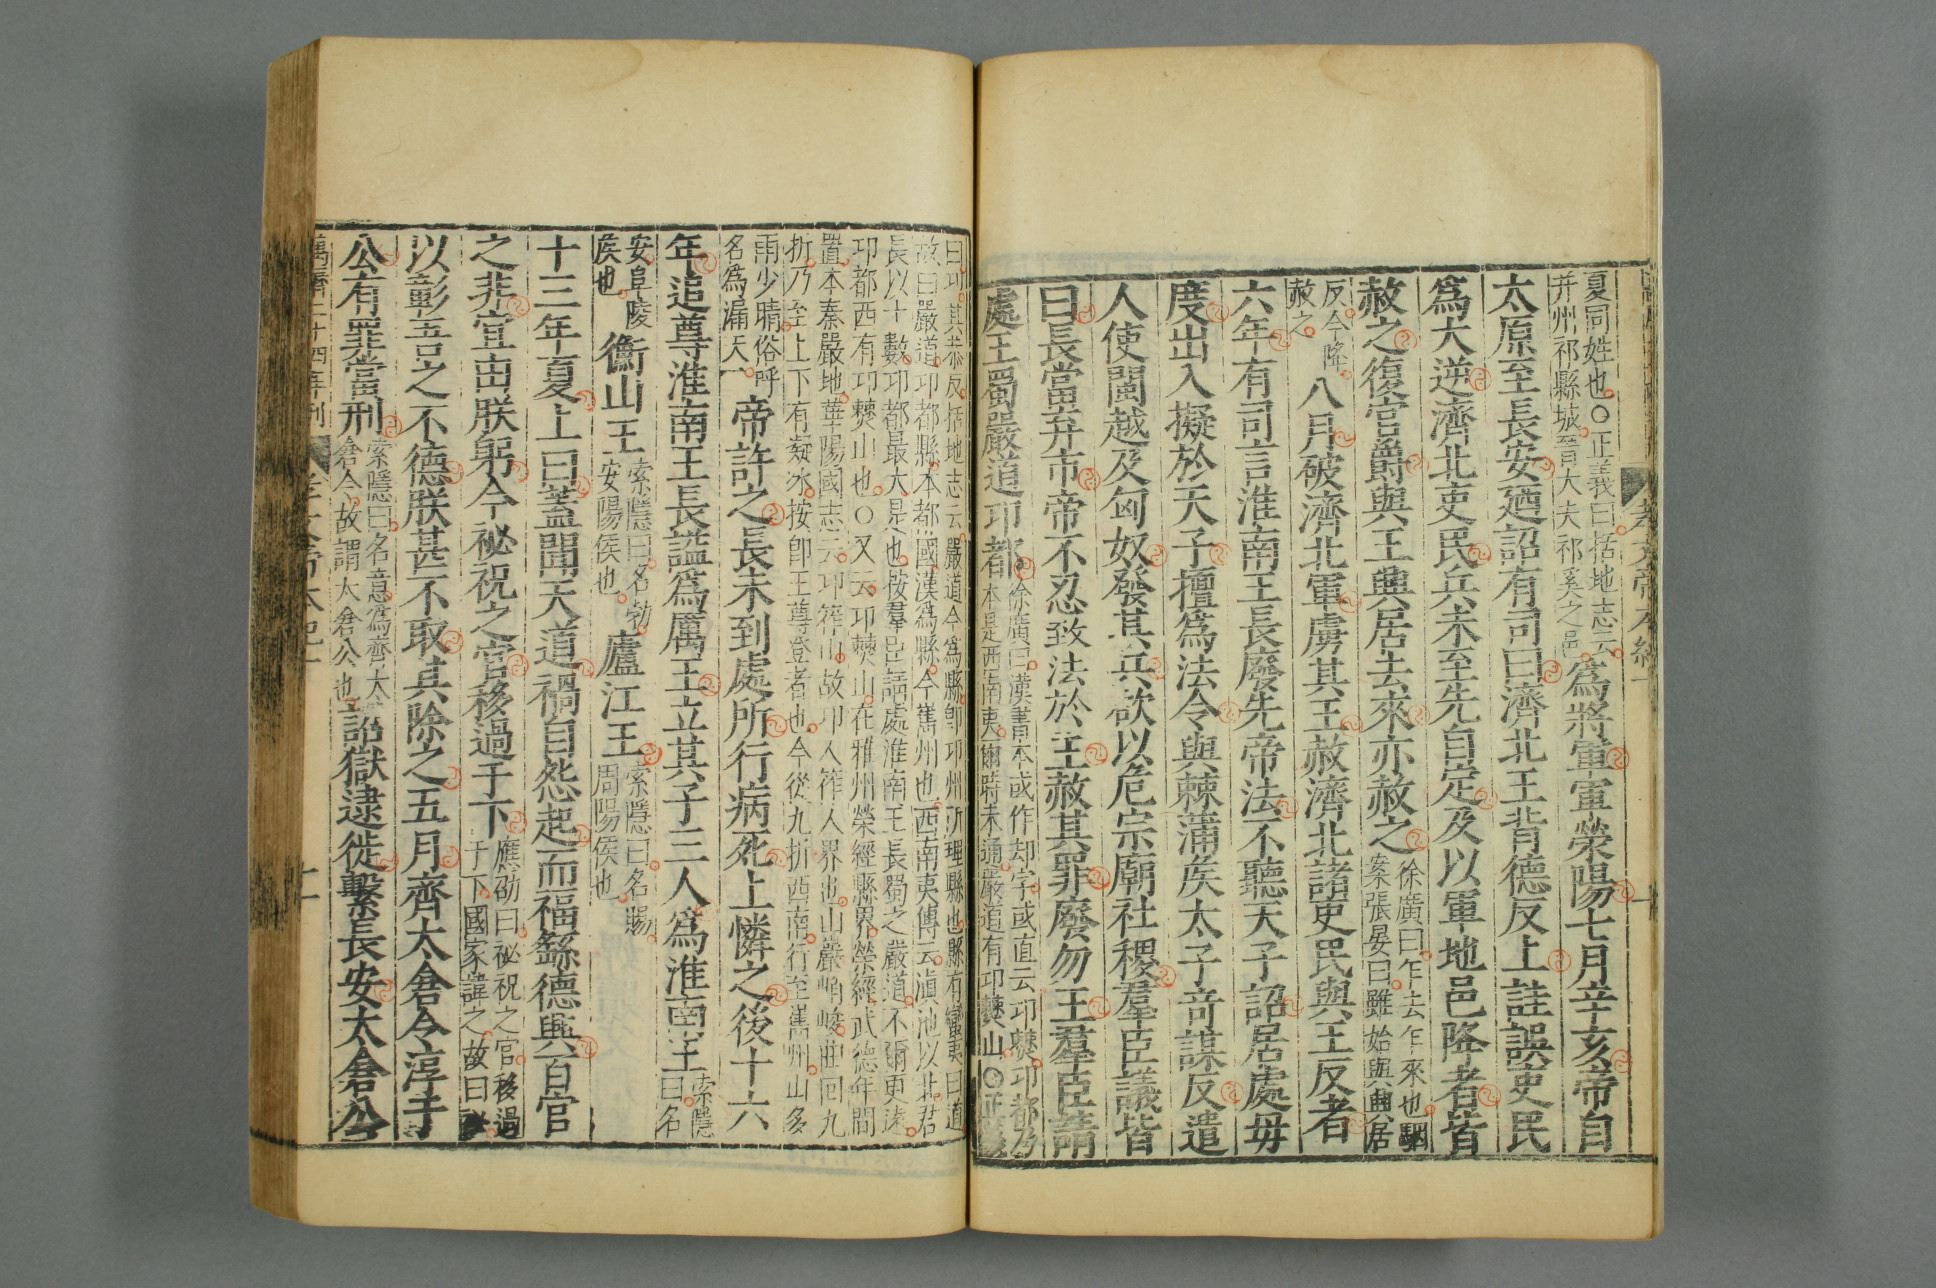 夏同姓也○正義曰括地志云
并州祁縣城晉大夫祁奚之邑
為將軍軍榮陽七月辛亥帝自
太原至長安廼詔有司曰濟北王背德反上詿誤吏民
為大逆濟北吏民兵未至先自定及以軍地邑降者皆
赦之復官爵與王興居去來亦赦之
徐廣曰乍去乍來也駰
案張晏曰雖始與興居
反今降
赦之
八月破濟北軍虜其王赦濟北諸吏民與王反者
六年有司言淮南王長廢先帝法不聽天子詔居處毋
度出入擬於天子擅為法令與棘蒲矦太子奇謀反遣
人使閩越及匈奴發其兵欲以危宗廟社稷羣臣議皆
曰長當弃市帝不忍致法於王赦其罪廢勿王羣臣請
處王蜀嚴道卭都
徐廣曰漢書本或作却字或直云卭僰卭都乃
本是西南夷爾時未通嚴道有卭僰山○正義
曰卭其恭反括地志云嚴道今為縣即卭州所理縣也縣有蠻夷曰道
故曰嚴道卭都縣本都國漢為縣今嶲州也西南夷傳云滇池以北君
長以十數卭都最大是也按羣臣請處淮南王長蜀之嚴道不爾更遠
卭都西有卭僰山也○又云卭僰山在雅州榮經縣界榮經武德年間
置本秦嚴地華陽國志云卭筰山故卭人筰人界也山巖峭峻曲回九
折乃至上下有凝冰按即王尊登者也今從九折西南行至嶲州山多
雨少晴俗呼
名為漏天
帝許之長未到處所行病死上憐之後十六
年追尊淮南王長謚為厲王立其子三人為淮南王
索隱
曰名
安阜陵
矦也
衡山王
索隱曰名勃
安陽侯也
廬江王
索隱曰名賜
周陽侯也
十三年夏上曰蓋聞天道禍自怨起而福繇德興百官
之非宜由朕躬今祕祝之官移過于下
應劭曰祕祝之官移過
于下國家諱之故曰祕
以彰吾之不德朕甚不取其除之五月齊太倉令淳于
公有罪當刑
索隱曰名意為齊太
倉令故謂太倉公也
詔獄逮徙繫長安太倉公